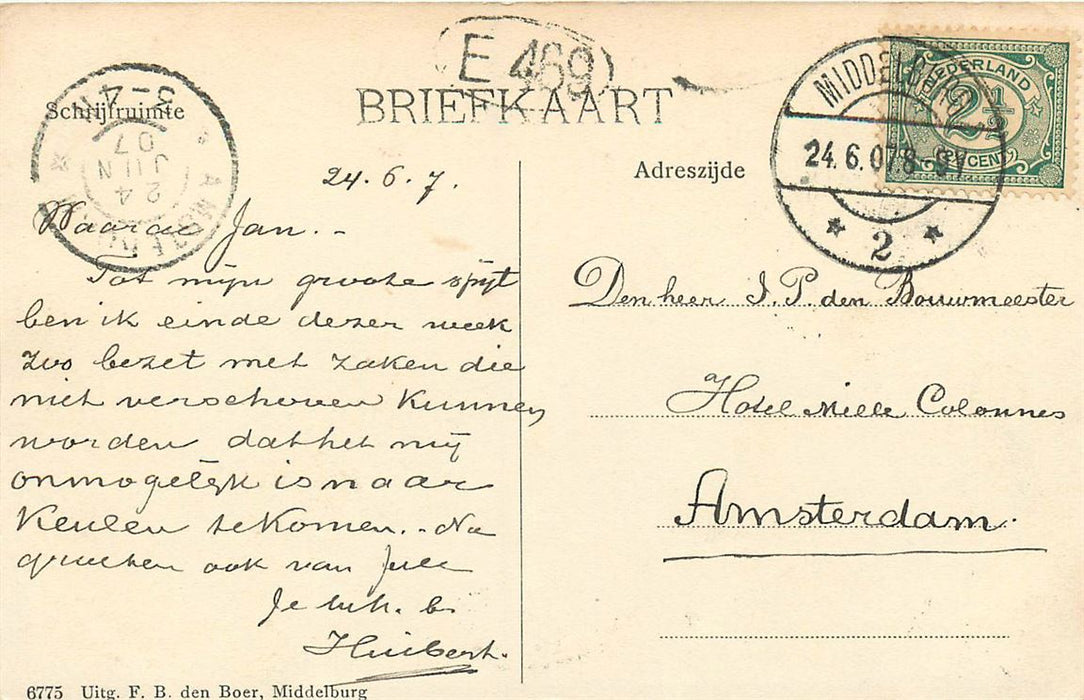 E 469
BRIEFKAART
Schrijfruimte
3-4 N
24
JUN
07
AMSTERDAM
MIDDELBURG
24.6.07.8-9V
2
NEDERLAND
2½
2½ CENT
Adreszijde
24.6.7.
Waarde Jan.-
Tot mijn groote spijt
ben ik einde dezer week
zoo bezet met zaken die
niet verschoven kunnen
worden dat het mij
onmogelijk is naar
Keulen te komen. - Na
groeten ook van
Je
Huibert.
Den heer J. P. den Bouwmeester
Hotel Mille Colonnes
Amsterdam.
6775 Uitg. F. B. den Boer, Middelburg